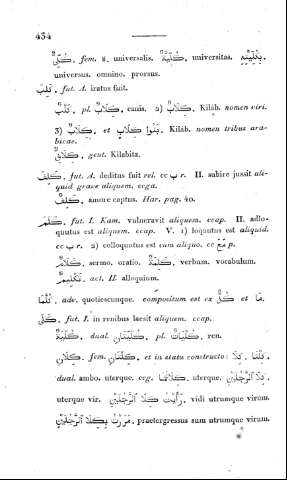 454
كُلِّىٌّ, fem. ة, universalis. كُلِّيَّةٌ, universitas. بِكُلِّيَّتِهِ,
universus. omnino. prorsus.
كَلِبَ, fut. A. iratus fuit.
كَلْبٌ, pl. كِلَابٌ, canis. 2) كِلَابٌ, Kiláb. nomen viri.
3) كِلَابٌ, et بَنُوا كِلَابٍ, Kiláb. nomen tribus ara-
bicae.
كِلَابِىٌّ, gent. Kilabita.
كَلِفَ, fut. A. deditus fuit rei. cc ب r. II. subire jussit ali-
quid grave aliquem. ccga.
كَلِفٌ, amore captus. Har. pag. 40.
كَلَمَ, fut. I. Kam. vulneravit aliquem. ccap. II. adlo-
quutus est aliquem. ccap. V. 1) loquutus est aliquid.
cc ب r. 2) colloquutus est cum aliquo. cc مع p.
كَلَامٌ, sermo. oratio. كَلِمَةٌ, verbum. vocabulum.
تَكْلِيمٌ, act. II. alloquium.
كُلَّمَا, adv. quotiescunque. compositum est ex كُلّ et مَا.
كَلَى, fut. I. in renibus laesit aliquem. ccap.
كُلْيَةٌ, dual. كُلْيَتَانِ, pl. كُلْيَاتٌ, ren.
كِلَانِ, fem. كِلْتَانِ, et in statu constructo: كِلَا, كِلْتَا,
dual. ambo. uterque. ceg. كِلَاهُمَا, uterque. كِلَا ٱلرَّجُلَيْنِ,
uterque vir. رَأَيْتُ كِلَا ٱلرَّجُلَيْنِ, vidi utrumque virum.
مَرَرْتُ بِكِلَا ٱلرَّجُلَيْنِ, praetergressus sum utrumque virum.